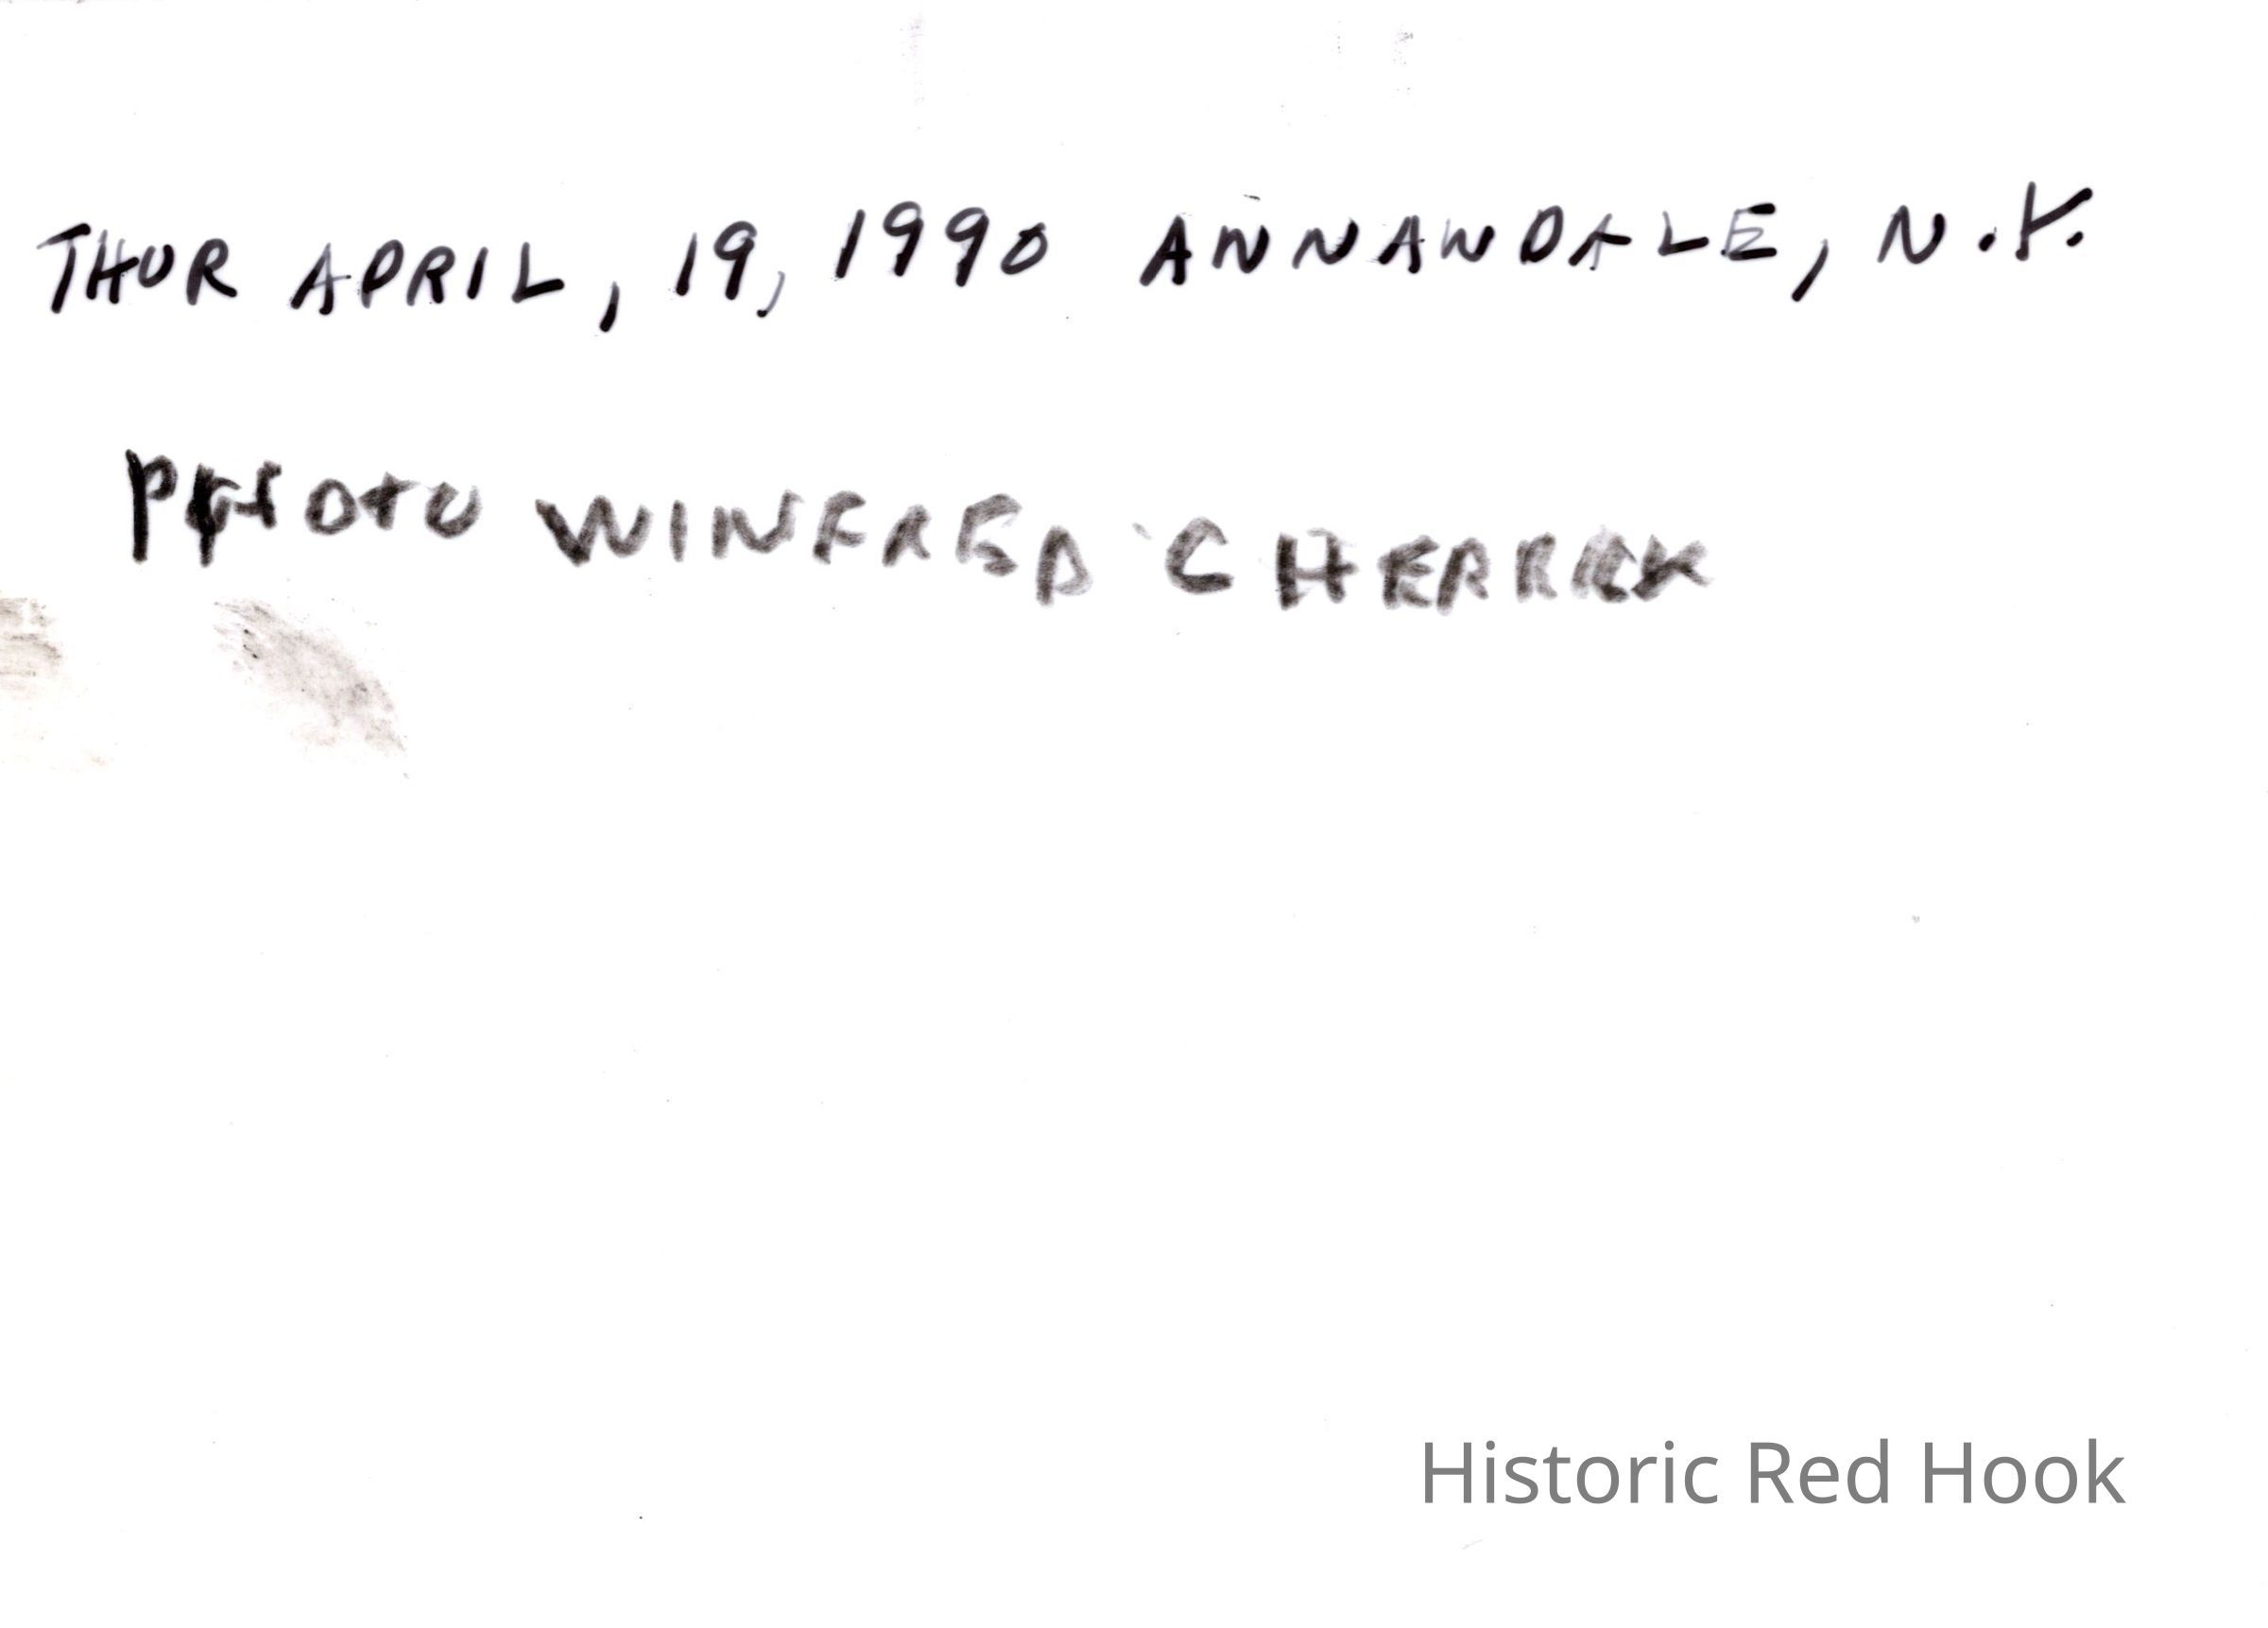 THUR APRIL, 19, 1990 ANNANDALE, N.Y.
PHOTO WINFRED
Historic Red Hook